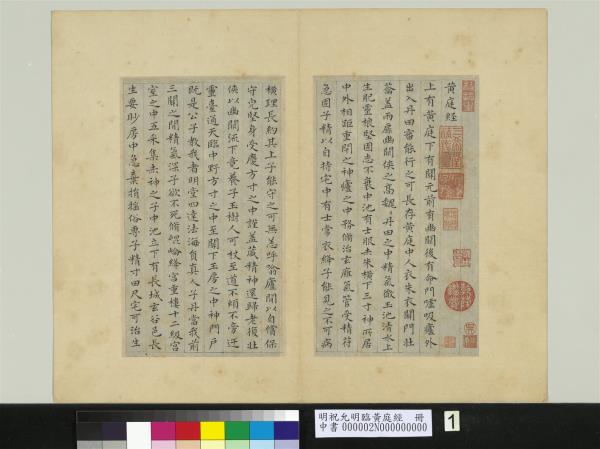 黃庭經
上有黃庭下有關元前有幽闕後有命門噓吸廬外
出入丹田審能行之可長存黃庭中人衣朱衣關門壯
籥蓋兩扉幽闕俠之高魏魏丹田之中精氣微玉池清水上
生肥靈根堅固志不衰中池有士服赤朱橫下三寸神所居
中外相距重閉之神廬之中務脩治玄廱氣管受精符
急固子精以自持宅中有士常衣絳子能見之可不病
橫理長尺約其上子能守之可無恙呼噏廬間以自償保
守完堅身受慶方寸之中謹蓋藏精神還歸老復壯
俠以幽闕流下竟養子玉樹人可杖至道不煩不旁迕
靈臺通天臨中野方寸之中至關下玉房之中神門戶
既是公子教我者明堂四達法海員真人子丹當我前
三關之間精氣深子欲不死脩崐崘絳宮重樓十二級宮
室之中五采集赤神之子中池立下有長城玄谷邑長
生要眇房中急棄捐搖俗專子精寸田尺宅可治生
明祝允明臨黃庭經 冊
中書 000002N000000000
1